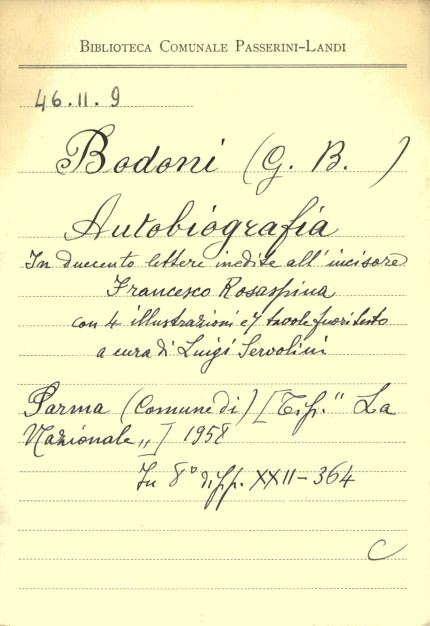 BIBLIOTECA COMUNALE PASSERINI-LANDI
46.II.9
Bodoni (G. B. )
Autobiografia
In duecento lettere inedite all'incisore
Francesco Rosaspina
con 4 illustrazioni e 7 tavole fuori testo
a cura di Luigi Servolini
Parma (Comune di) [Tip. "La
Nazionale„] 1958
In 8° di pp. XXII-364
C